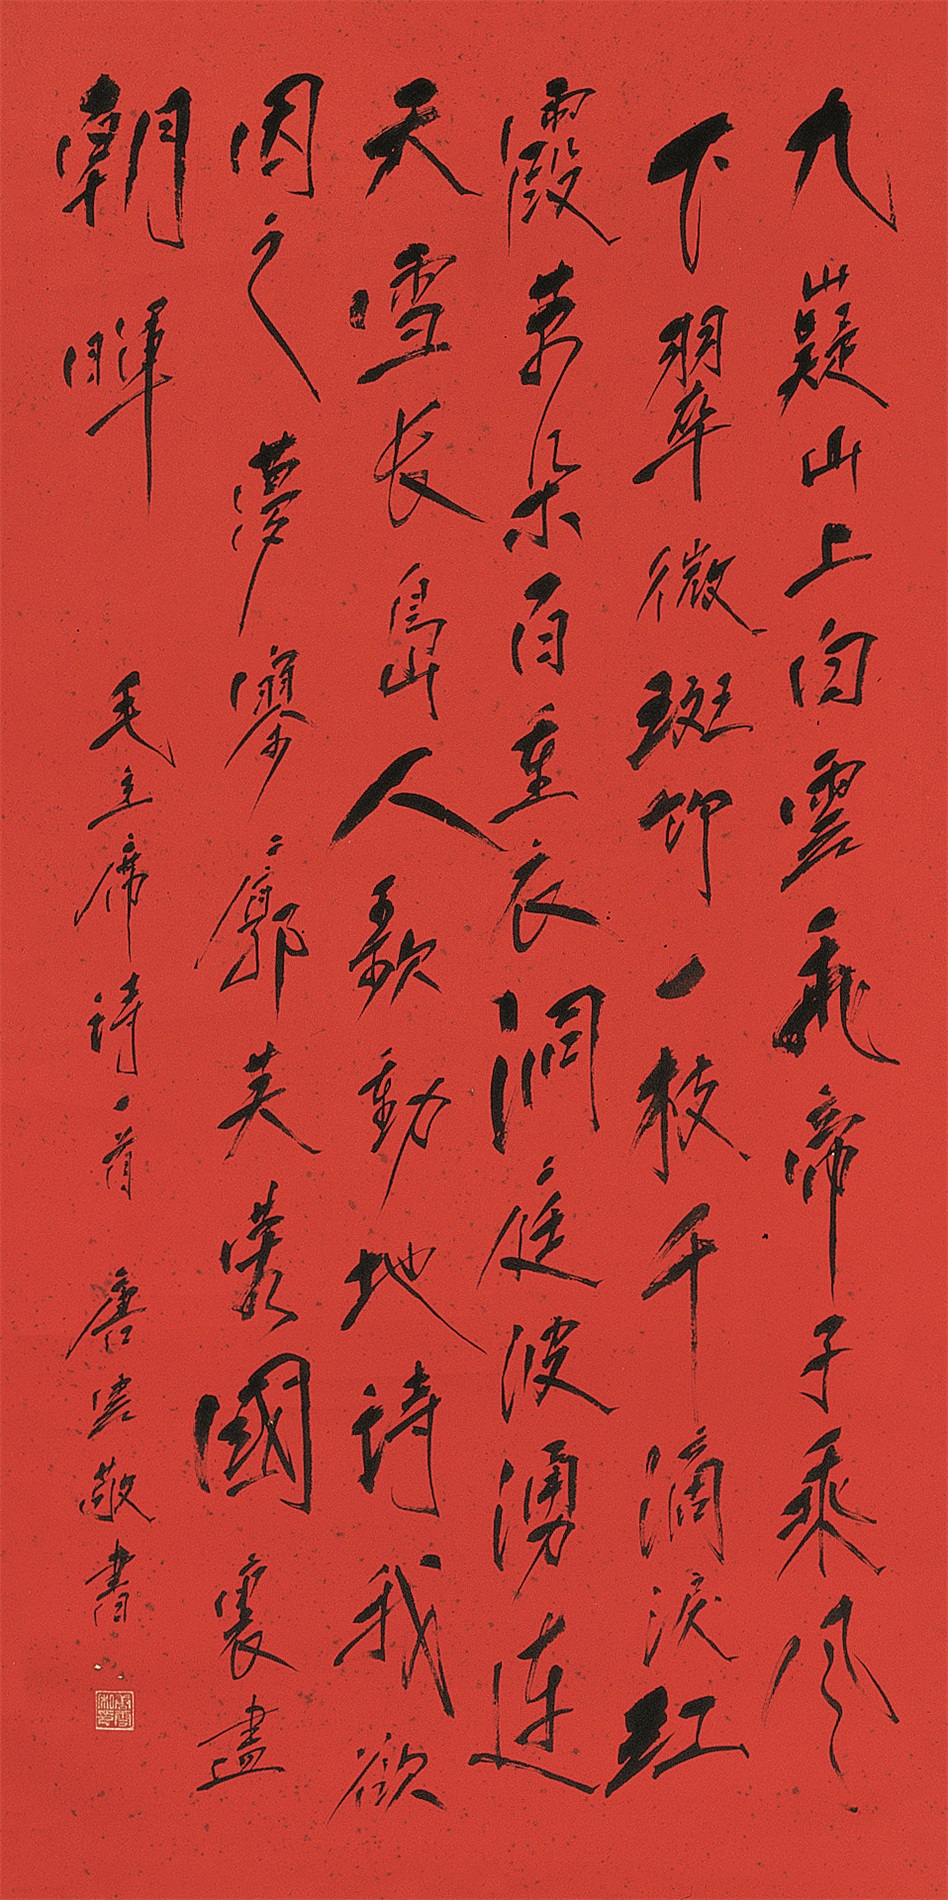 九嶷山上白雲飛帝子乘風
下翠微斑竹一枝千滴淚紅
霞萬朵百重衣洞庭波湧連
天雪長島人歌動地詩我欲
因之夢寥廓芙蓉國裏盡
朝暉
毛主席詩一首 唐雲敬書